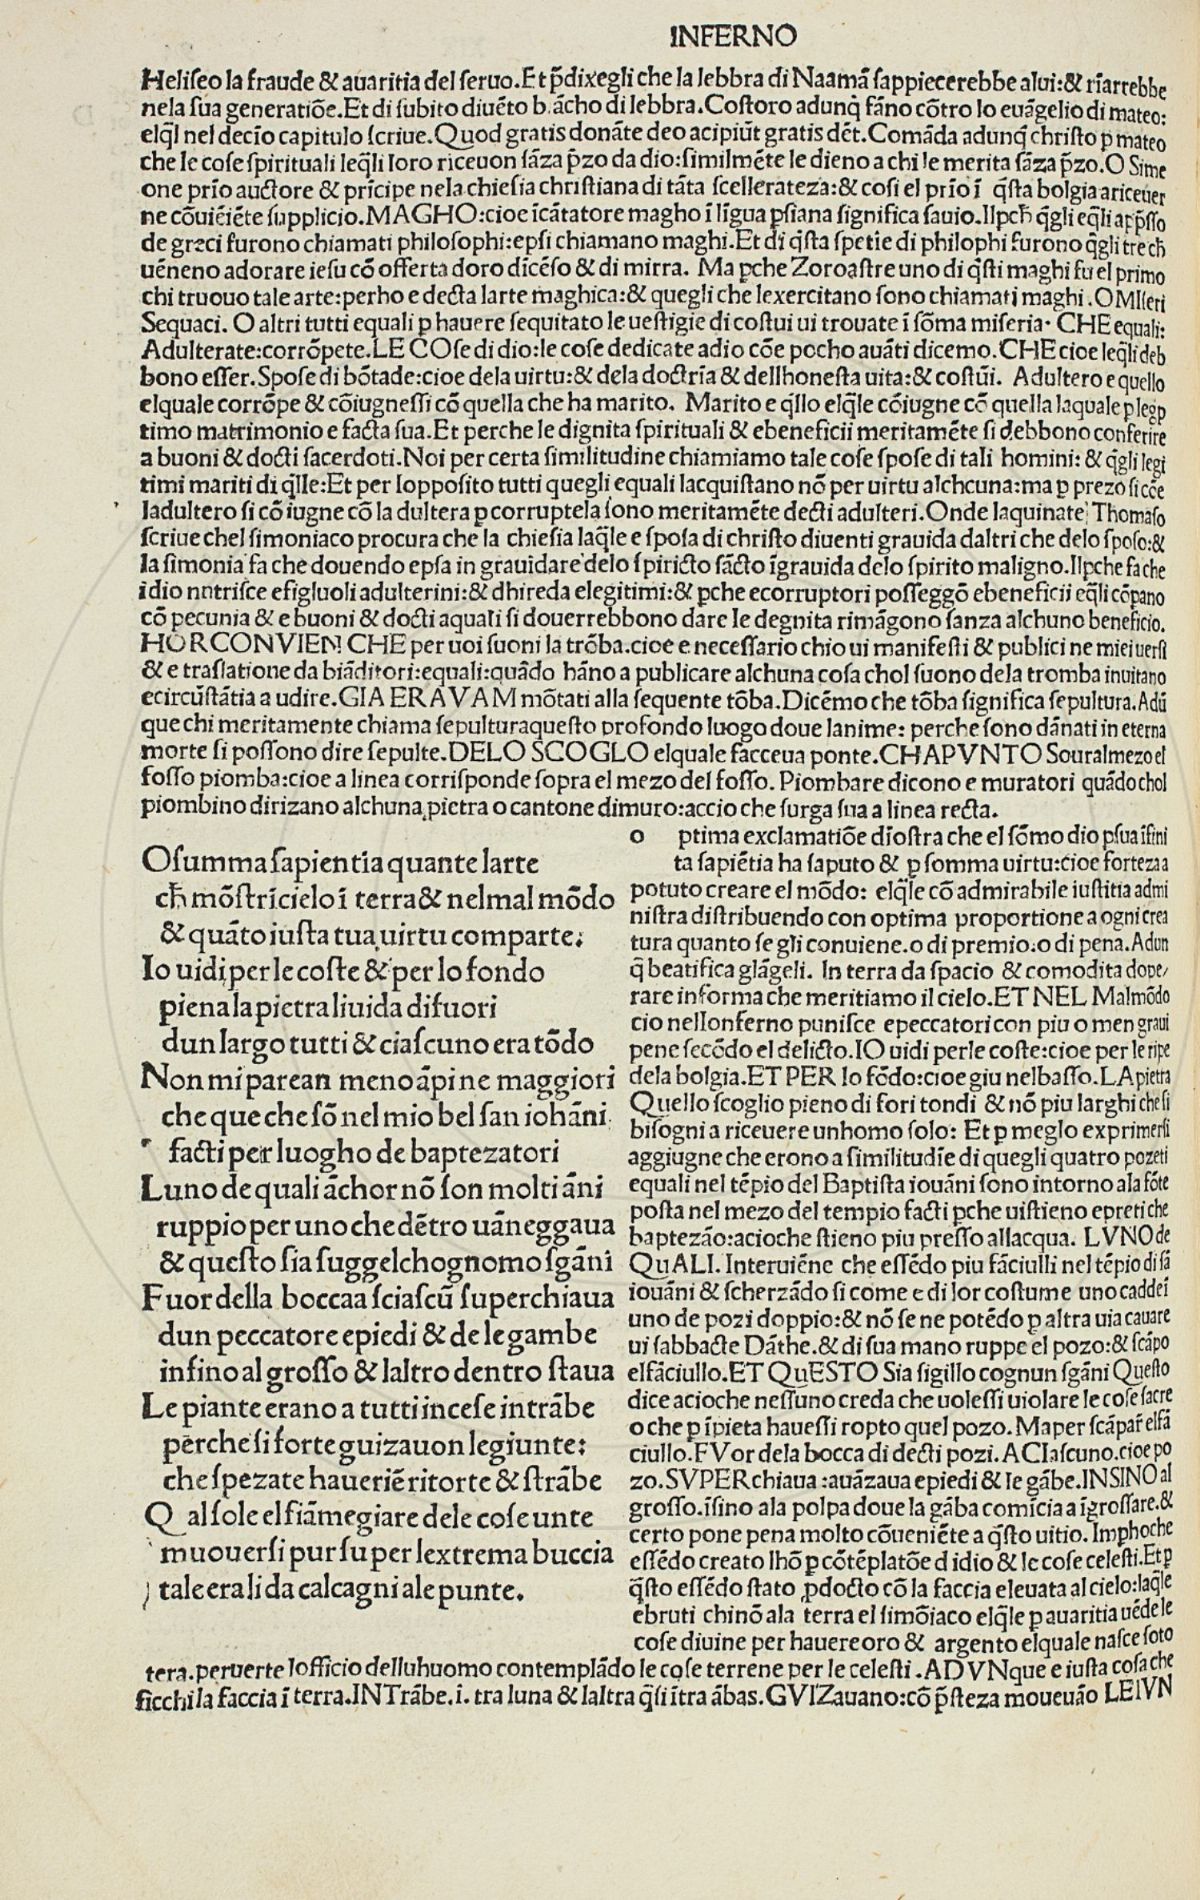 INFERNO
Heliſeo la fraude & auaritia del ſeruo.Et p̄dixegli che la lebbra di Naamā ſappiecerebbe alui:& rīarrebbe
nela ſua generatiōe.Et di ſubito diuēto biācho di lebbra.Coſtoro adunq̄ fāno cōtro lo euāgelio di mateo:
elq̄l nel decīo capitulo ſcriue.Quod gratis donāte deo acipiūt gratis dēt.Comāda adunq̄ chriſto ꝑ mateo
che le coſe ſpirituali leq̄li loro riceuon ſāza p̄zo da dio:ſimilmēte le dieno a chi le merita ſāza p̄zo.O Sime
one prīo auctore & prīcipe nela chieſia chriſtiana di tāta ſcellerateza:& coſi el prīo ī q̄ſta bolgia a riceuer
ne cōuiēiēte ſupplicio.MAGHO:cioe īcātatore magho ī līgua pſiana ſignifica ſauio.Ilpch̄ q̄gli eq̄li ap̄ſſo
de greci furono chiamati philoſophi:epſi chiamano maghi.Et di q̄ſta ſpetīe di philophi furono q̄gli tre ch̄
uēneno adorare ieſu cō offerta doro dīcēſo & di mirra. Ma ꝑche Zoroaſtre uno di q̄ſti maghi fu el primo
chi truouo tale arte:perho e decta larte maghica:& quegli che lexercitano ſono chiamati maghi.O MIſeri
Sequaci. O altri tutti equali ꝑ hauere ſequitato le ueſtigie di coſtui ui trouate ī ſōma miſeria· CHE equali:
Adulterate:corrōpete.LE COſe di dio:le coſe dedicate adio cōe pocho auāti dicemo.CHE cioe leq̄li deb
bono eſſer.Spoſe di bōtade:cioe dela uirtu:& dela doctrīa & dellhoneſta uita:& coſtūi. Adultero e quello
elquale corrōpe & cōiugneſſi cō quella che ha marito. Marito e q̄llo elq̄le cōiugne cō quella laquale ꝑ legp
timo matrimonio e facta ſua.Et perche le dignita ſpirituali & ebeneficii meritamēte ſi debbono conferire
a buoni & docti ſacerdoti.Noi per certa ſimilitudine chiamiamo tale coſe ſpoſe di tali homini: & q̄gli legi
timi mariti di q̄lle:Et per lo oppoſito tutti quegli equali lacquiſtano nō per uirtu alchcuna:ma ꝑ prezo ſi cōe
ladultero ſi cōiugne cō la dultera ꝑ corruptela ſono meritamēte decti adulteri.Onde laquinate Thomaſo
ſcriue chel ſimoniaco procura che la chieſia laq̄le e ſpoſa di chriſto diuenti grauida daltri che delo ſpoſo:&
la ſimonia fa che douendo epſa in grauidare delo ſpiricto ſācto īgrauida delo ſpirito maligno.Ilpche fa che
idio nutriſce efigluoli adulterini:& dhireda elegitimi:& ꝑche ecorruptori poſſeggō ebeneficii eq̄li cōpano
cō pecunia & e buoni & docti aquali ſi douerrebbono dare le degnita rimāgono ſanza alchuno beneficio.
HOR CONVIEN CHE per uoi ſuoni la trōba.cioe e neceſſario chio ui manifeſti & publici ne miei uerſi
& e traſlatione da biāditori:equali:quādo hāno a publicare alchuna coſa chol ſuono dela tromba inuitano
ecircūſtātia a udire.GIA ERAVAM mōtati alla ſequente tōba.Dicēmo che tōba ſignifica ſepultura.Adū
que chi meritamente chiama ſepulturaqueſto profondo luogo doue lanime: perche ſono dānati in eterna
morte ſi poſſono dire ſepulte.DELO SCOGLO elquale facceua ponte.CHAPVNTO Souralmezo el
foſſo piomba:cioe a linea corriſponde ſopra el mezo del foſſo. Piombare dicono e muratori quādo chol
piombino dirizano alchuna pietra o cantone dimuro:accio che ſurga ſua a linea recta.
O ſumma ſapientīa quante larte
ch̄ mōſtri cielo ī terra & nelmal mōdo
& quāto iuſta tua uirtu comparte:
Io uidi per le coſte & per lo fondo
piena la pietra liuida di fuori
dun largo tutti & ciaſcuno era tōdo
Non mi parean meno āpi ne maggiori
che que che ſō nel mio bel ſan iohāni
facti per luogho de baptezatori
Luno de quali āchor nō ſon molti āni
ruppio per uno che dētro uāneggaua
& queſto ſia ſuggel chognomo ſgāni
Fuor della bocca a ſciaſcū ſuperchiaua
dun peccatore epiedi & de le gambe
inſino al groſſo & laltro dentro ſtaua
Le piante erano a tutti inceſe intrābe
perche ſi forte guizauon legiunte:
che ſpezate hauerīē ritorte & ſtrābe
Qual ſole el fiāmegiare dele coſe unte
muouerſi pur ſu per lextrema buccia
tale era li da calcagni ale punte.
o ptima exclamatiōe dīoſtra che el ſōmo dio ꝑ ſua īfini
ta ſapiētia ha ſaputo & ꝑ ſomma uirtu:cioe forteza a
potuto creare el mōdo: elq̄le cō admirabile iuſtitia admi
niſtra diſtribuendo con optima proportione a ogni crea
tura quanto ſe gli conuiene.o di premio:o di pena.Adun
q̄ beatifica glāgeli. In terra da ſpacio & comodita dope/
rare in forma che meritiamo il cielo.ET NEL Malmōdo
cio nellonferno puniſce epeccatori con piu o men graui
pene ſecōdo el delicto.IO uidi perle coſte:cioe per le ripe
dela bolgia.ET PER lo fōdo:cioe giu nel baſſo.LA pietra
Quello ſcoglio pieno di fori tondi & nō piu larghi che ſi
biſogni a riceuere un homo ſolo: Et ꝑ meglo exprimerſi
aggiugne che erono a ſimilitudīe di quegli quatro pozeti
equali nel tēpio del Baptiſta iouāni ſono intorno a la fōte
poſta nel mezo del tempio facti ꝑche uiſtieno epreti che
baptezāo:acioche ſtieno piu preſſo allacqua. LVNO de
QuALI.Interuiēne che eſſēdo piu fāciulli nel tēpio di ſā
iouāni & ſcherzādo ſi come e di lor coſtume uno cadde ī
uno de pozi doppio:& nō ſe ne potēdo ꝑ altra uia cauare
ui ſabbacte Dāthe.& di ſua mano ruppe el pozo:& ſcāpo
elfāciullo.ET QuESTO Sia ſigillo cognun ſgāni Queſto
dice acioche neſſuno creda che uoleſſi uiolare le coſe ſacre
o che ꝑ īpieta haueſſi ropto quel pozo.Ma per ſcāpar̄ elfā
ciullo.FVor dela bocca di decti pozi.ACIaſcuno.cioe po
zo.SVPERchiaua:auāzaua epiedi & le gābe.INSINO al
groſſo.īſino ala polpa doue la gāba comīcia a īgroſſare.&
certo pone pena molto cōueniēte a q̄ſto uitio. Imphoche
eſſēdo creato lhō ꝑ cōtēplatōe d idio & le coſe celeſti.Et ꝑ
q̄ſto eſſēdo ſtato ꝓdocto cō la faccia eleuata al cielo:laq̄le
ebruti chinō ala terra el ſimōiaco elq̄le ꝑ auaritia uēde le
coſe diuine per hauere oro & argento elquale naſce ſoto
tera.peruerte lofficio delluhuomo contemplādo le coſe terrene per le celeſti.ADVNque e iuſta coſa che
ficchi la faccia ī terra.INTrābe.i. tra luna & laltra q̄ſi ītra ābas.GVIZauano:cō p̄ſteza moueuāo LEIVN